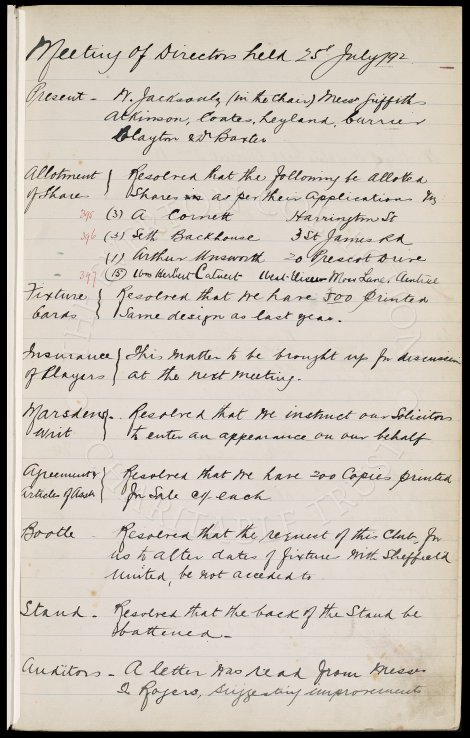 Meeting of Directors held 25th July/92
Present - W. Jackson Esq (in the Chair) Messrs Griffiths
Atkinson, Coates, Leyland, Currier
Clayton & Dr Baxter
Allotment of Shares } Resolved that the following be allotted
Shares as per their Applications
395 (3) A Cornett Harrington St
396 (3) Seth Backhouse 3 St James Rd
(1) Arthur Unsworth 20 Prescot Drive
397 (15) Herbert Calvert Moss Lane, Aintree
Fixture Cards } Resolved that we have 500 printed
Same design as last year.
Insurance of Players } This matter to be brought up for discussion
at the next meeting.
Marsdens Writ } - Resolved that we instruct our Solicitors
to enter an appearance on our behalf
Agreement & Articles of Assn } Resolved that we have 200 Copies printed
for Sale each
Bootle - Resolved that the request of this Club, for
us to alter dates of fixture with Sheffield
United, be not acceded to
Stand - Resolved that the back of the Stand be
battened -
Auditors - A letter was read from Messrs
Rogers, suggesting improvements